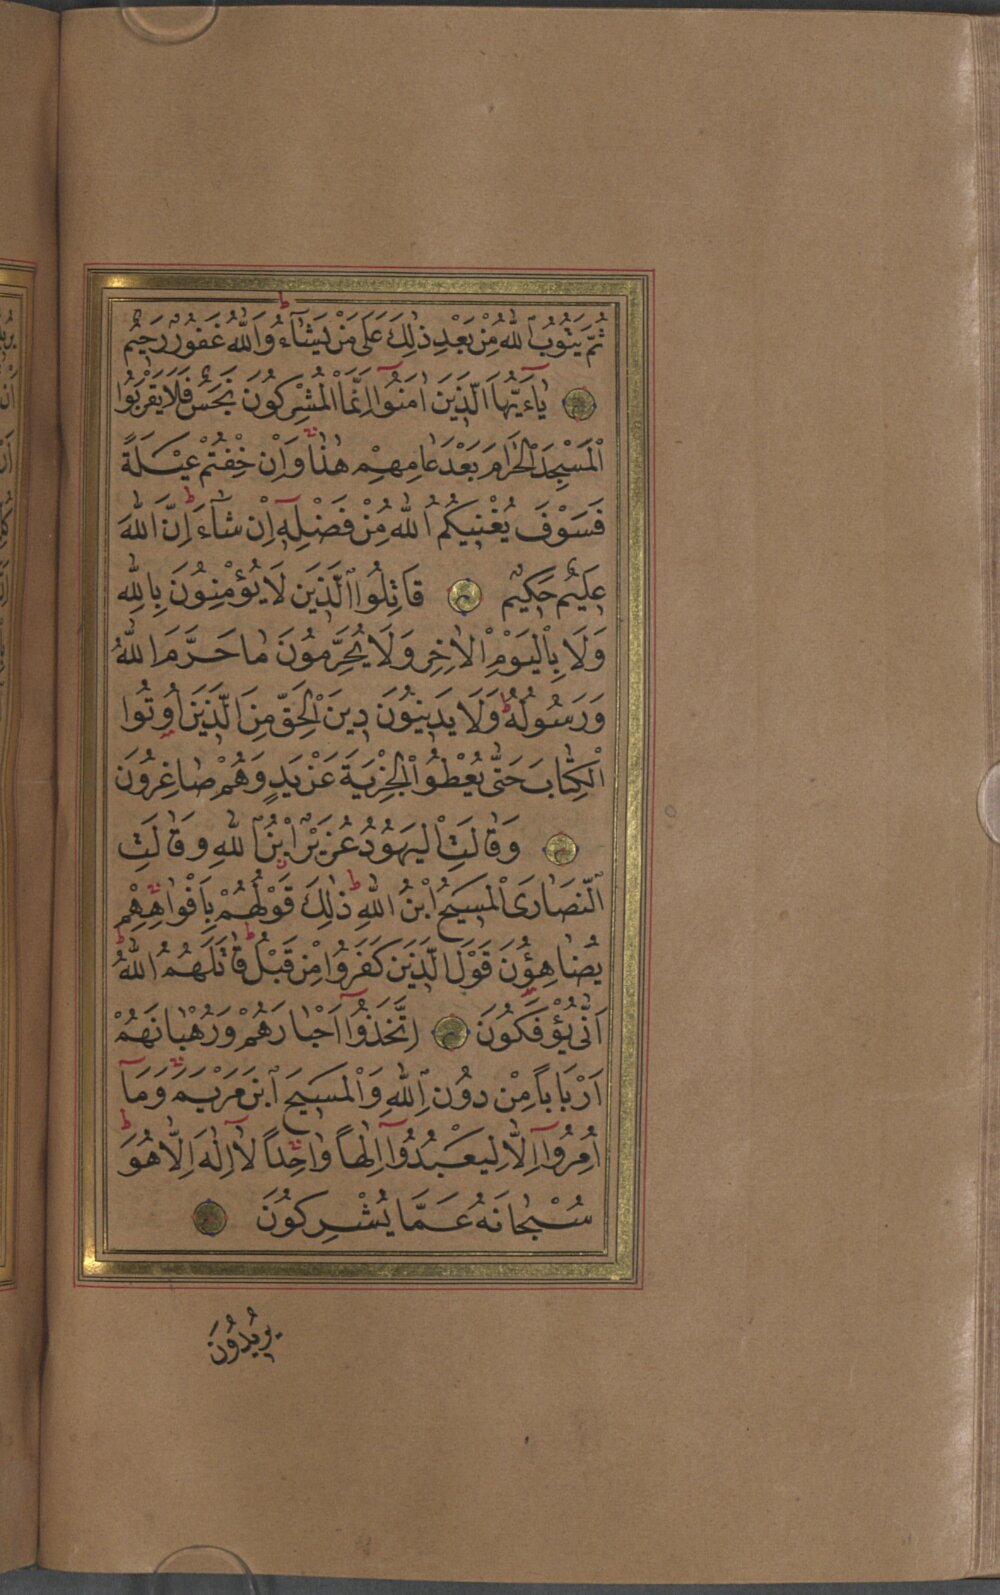 ثُمَّ يَتُوبُ اللّٰهُ مِنْ بَعْدِ ذٰلِكَ عَلٰى مَنْ يَشَآءُ ط وَاللّٰهُ غَفُورٌ رَحِيمٌ
يَآءَيُّهَا الَّذِينَ اٰمَنُوٓا اِنَّمَا الْمُشْرِكُونَ نَجَسٌ فَلَا يَقْرَبُوا
الْمَسْجِدَ الْحَرَامَ بَعْدَ عَامِهِمْ هٰذَا وَاِنْ خِفْتُمْ عَيْلَةً
فَسَوْفَ يُغْنِيكُمُ اللّٰهُ مِنْ فَضْلِهِٓ اِنْ شَآءَ ط اِنَّ اللّٰهَ
عَلِيمٌ حَكِيمٌ قَاتِلُوا الَّذِينَ لَا يُؤْمِنُونَ بِاللّٰهِ
وَلَا بِالْيَوْمِ الْاٰخِرِ وَلَا يُحَرِّمُونَ مَا حَرَّمَ اللّٰهُ
وَرَسُولُهُ ط وَلَا يَدِينُونَ دِينَ الْحَقِّ مِنَ الَّذِينَ اُوتُوا
الْكِتَابَ حَتّٰى يُعْطُوا الْجِزْيَةَ عَنْ يَدٍ وَهُمْ صَاغِرُونَ
وَقَالَتِ الْيَهُودُ عُزَيْرٌ ابْنُ اللّٰهِ وَقَالَتِ
النَّصَارَى الْمَسِيحُ ابْنُ اللّٰهِ ط ذٰلِكَ قَوْلُهُمْ بِاَفْوَاهِهِمْ
يُضَاهِؤُنَ قَوْلَ الَّذِينَ كَفَرُوا مِنْ قَبْلُ ط قَاتَلَهُمُ اللّٰهُ ط
اَنّٰى يُؤْفَكُونَ اِتَّخَذُوٓا اَحْبَارَهُمْ وَرُهْبَانَهُمْ
اَرْبَابًا مِنْ دُونِ اللّٰهِ وَالْمَسِيحَ ابْنَ مَرْيَمَ وَمَآ
اُمِرُوٓا اِلَّا لِيَعْبُدُوٓا اِلٰهًا وَاحِدًا لَآ اِلٰهَ اِلَّا هُوَ ط
سُبْحَانَهُ عَمَّا يُشْرِكُونَ
يُرِيدُونَ